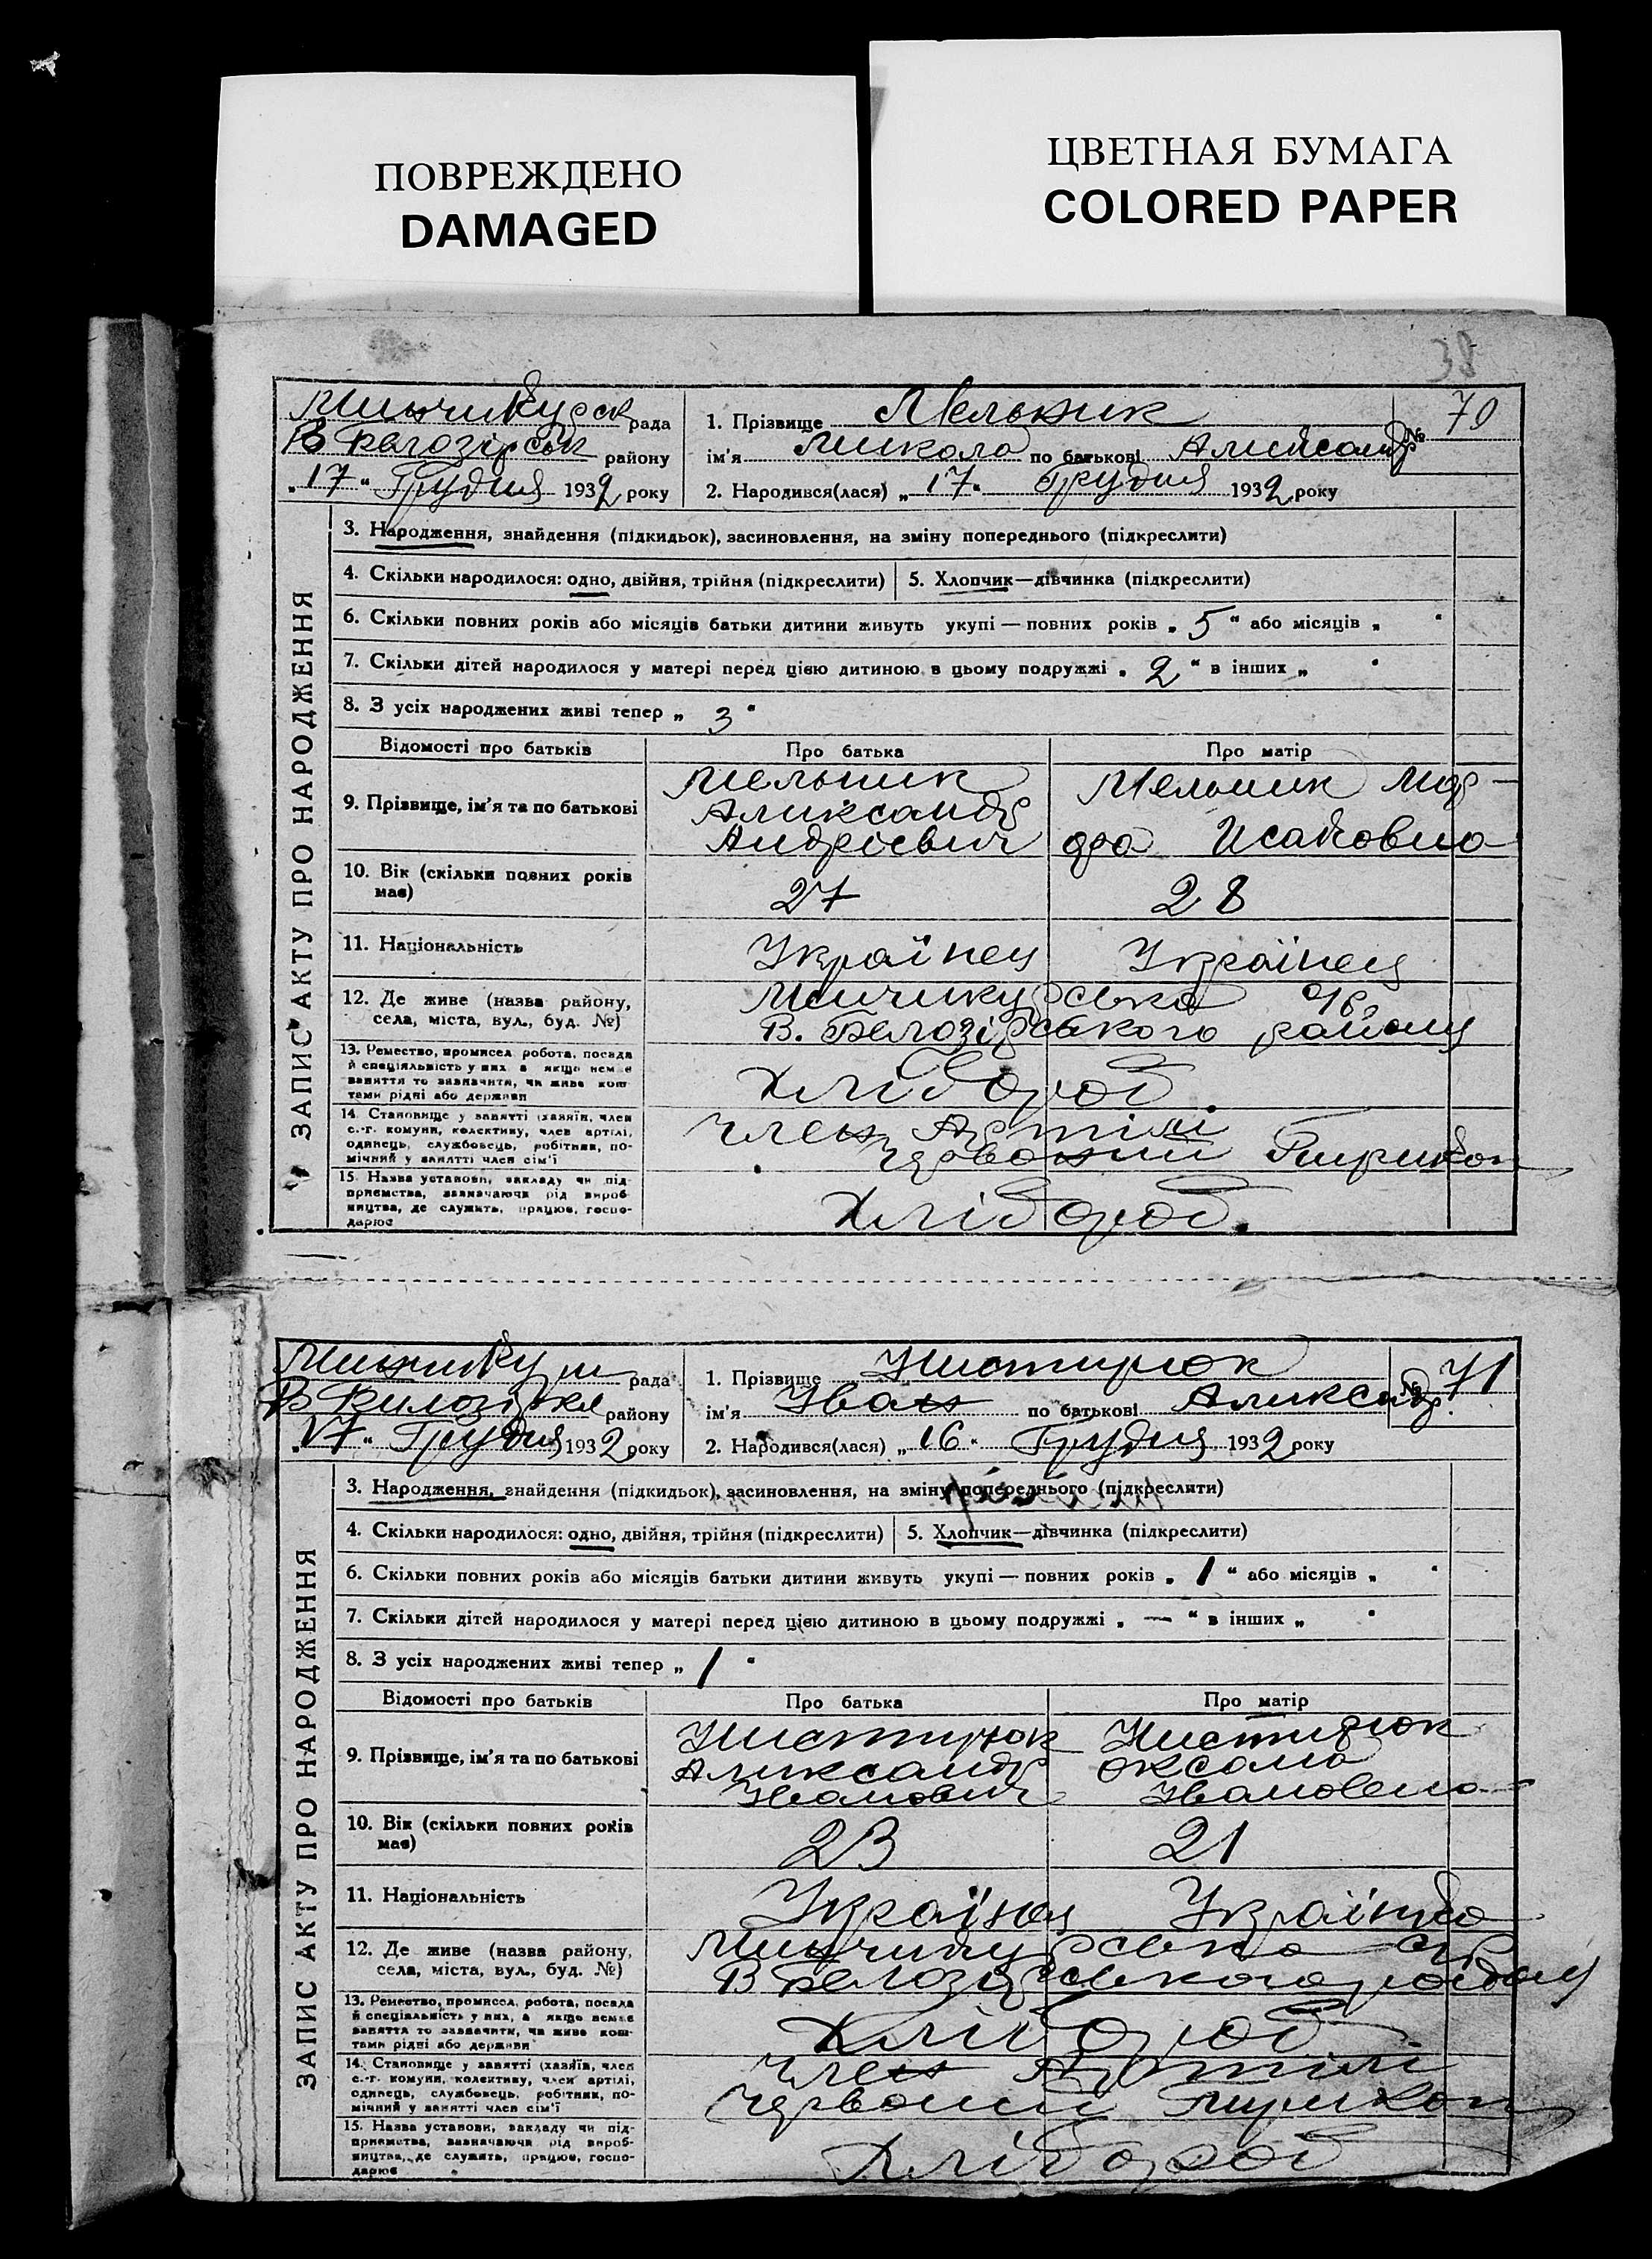 ПОВРЕЖДЕНО
DAMAGED
ЦВЕТНАЯ БУМАГА
COLORED PAPER
38
рада
В Белозірськ району
„17“ Грудня 1932 року
1. Прізвище Мельник
№ 70
ім'я Микола по батькові Александр
2. Народився(лася) „17“ Грудня 1932 року
ЗАПИС АКТУ ПРО НАРОДЖЕННЯ
3. Народження, знайдення (підкидьок), засиновлення, на зміну попереднього (підкреслити)
4. Скільки народилося: одно, двійня, трійня (підкреслити)
5. Хлопчик—дівчинка (підкреслити)
6. Скільки повних років або місяців батьки дитини живуть укупі — повних років „5“ або місяців „ “
7. Скільки дітей народилося у матері перед цією дитиною в цьому подружжі „2“ в інших „ “
8. З усіх народжених живі тепер „3“
Відомості про батьків
Про батька
Про матір
9. Прізвище, ім'я та по батькові
Мельник
Александр
Андрієвич
Мельник
Исаковна
10. Вік (скільки повних років
має)
27
28
11. Національність
Українец
Українец
12. Де живе (назва району,
села, міста, вул., буд. №)
В. Белозірського району
13. Ремество, промисел, робота, посада
й спеціяльність у них, а якщо немає
заняття то зазначити, чи живе кош-
тами рідні або держави
Хлібороб
14. Становище у занятті (хазяїн, член
с.-г. комуни, колективу, член артілі,
одинець, службовець, робітник, по-
мічний у занятті член сім'ї
член Артілі
Червоний
15. Назва установи, закладу чи під-
приємства, зазначаючи рід вироб-
ництва, де служить, працює, госпо-
дарює
Хлібороб.
рада
району
„17“ Грудня 1932 року
1. Прізвище
№ 71
ім'я Іван по батькові Александр.
2. Народився(лася) „16“ Грудня 1932 року
ЗАПИС АКТУ ПРО НАРОДЖЕННЯ
3. Народження, знайдення (підкидьок), засиновлення, на зміну попереднього (підкреслити)
4. Скільки народилося: одно, двійня, трійня (підкреслити)
5. Хлопчик—дівчинка (підкреслити)
6. Скільки повних років або місяців батьки дитини живуть укупі — повних років „1“ або місяців „ “
7. Скільки дітей народилося у матері перед цією дитиною в цьому подружжі „—“ в інших „ “
8. З усіх народжених живі тепер „1“
Відомості про батьків
Про батька
Про матір
9. Прізвище, ім'я та по батькові
Александр
Іванович
Оксана
Івановена
10. Вік (скільки повних років
має)
23
21
11. Національність
Українец
Українка
12. Де живе (назва району,
села, міста, вул., буд. №)
В Белозірського району
13. Ремество, промисел, робота, посада
й спеціяльність у них, а якщо немає
заняття то зазначити, чи живе кош-
тами рідні або держави
Хлібороб
14. Становище у занятті (хазяїн, член
с.-г. комуни, колективу, член артілі,
одинець, службовець, робітник, по-
мічний у занятті член сім'ї
член Артілі
Червоний
15. Назва установи, закладу чи під-
приємства, зазначаючи рід вироб-
ництва, де служить, працює, госпо-
дарює
Хлібороб